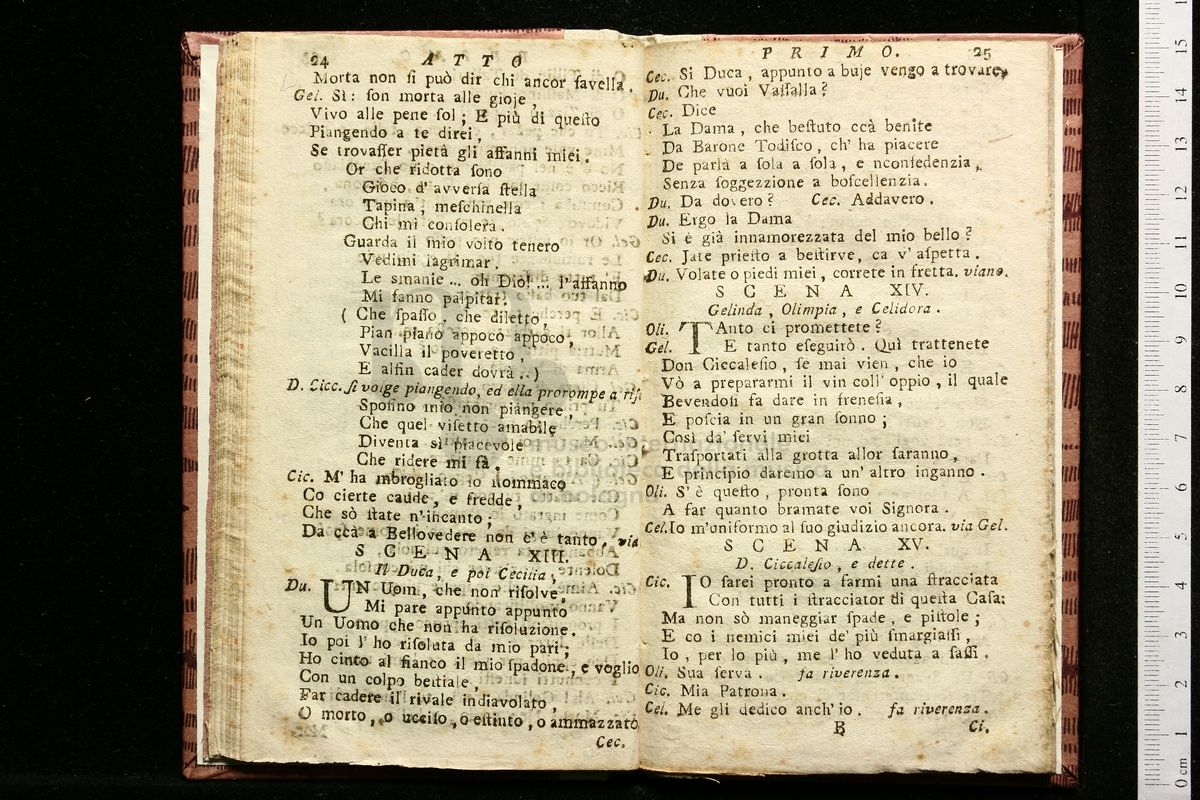 24 ATTO
Morta non ſi può dir chi ancor favella.
Gel. Sì: ſon morta alle gioje,
Vivo alle pene ſol; E più di queſto
Piangendo a te direi,
Se trovaſſer pietà gli affanni miei.
Or che ridotta ſono
Gioco d' avverſa ſtella
Tapina, meſchinella
Chi mi conſolerà.
Guarda il mio volto tenero
Vedimi lagrimar.
Le smanie ... oh Dio! ... l'affanno
Mi fanno palpitar.
( Che ſpaſſo, che diletto,
Pian piano appoco appoco,
Vacilla il poveretto,
E alfin cader dovrà ..)
D. Cicc. ſi volge piangendo, ed ella prorompe a riſ
Spoſino mio non piangere,
Che quel viſetto amabile
Diventa sì piacevole
Che ridere mi fà.
Cic. M' ha mbrogliato lo ſtommaco
Co cierte caude, e fredde,
Che sò ſtate n'incanto;
Da ccà a Bellovedere non c'è tanto. via
SCENA XIII.
Il Duca, e poi Cecilia.
Du. UN Uom, che non riſolve,
Mi pare appunto appunto
Un Uomo che non ha riſoluzione.
Io poi l' ho riſoluta da mio pari;
Ho cinto al fianco il mio ſpadone, e voglio
Con un colpo beſtiale
Far cadere il rivale indiavolato,
O morto, o ucciſo, o eſtinto, o ammazzato
Cec.
PRIMO. 25
Cec. Si Duca, appunto a buje vengo a trovare.
Du. Che vuoi Vaſſalla?
Cec. Dice
La Dama, che beſtuto ccà benite
Da Barone Todiſco, ch' ha piacere
De parlà a ſola a ſola, e nconfedenzia,
Senza ſoggezzione a boſcellenzia.
Du. Da dovero? Cec. Addavero.
Du. Ergo la Dama
Si è già innamorezzata del mio bello?
Cec. Jate prieſto a beſtirve, ca v' aſpetta.
Du. Volate o piedi miei, correte in fretta. viano.
SCENA XIV.
Gelinda, Olimpia, e Celidora.
Oli. TAnto ci promettete?
Gel. E tanto eſeguirò. Quì trattenete
Don Ciccaleſio, ſe mai vien, che io
Vò a prepararmi il vin coll' oppio, il quale
Bevendoſi fa dare in freneſia,
E poſcia in un gran ſonno;
Così da' ſervi miei
Traſportati alla grotta allor ſaranno,
E principio daremo a un' altro inganno.
Oli. S' è queſto, pronta ſono
A far quanto bramate voi Signora.
Cel. Io m'uniformo al ſuo giudizio ancora. via Gel.
SCENA XV.
D. Ciccaleſio, e dette.
Cic. IO ſarei pronto a farmi una ſtracciata
Con tutti i ſtracciator di queſta Caſa:
Ma non sò maneggiar ſpade, e piſtole;
E co i nemici miei de' più ſmargiaſſi,
Io, per lo più, me l' ho veduta a ſaſſi.
Oli. Sua ſerva. fa riverenza.
Cic. Mia Patrona.
Cel. Me gli dedico anch' io. fa riverenza.
B Ci.